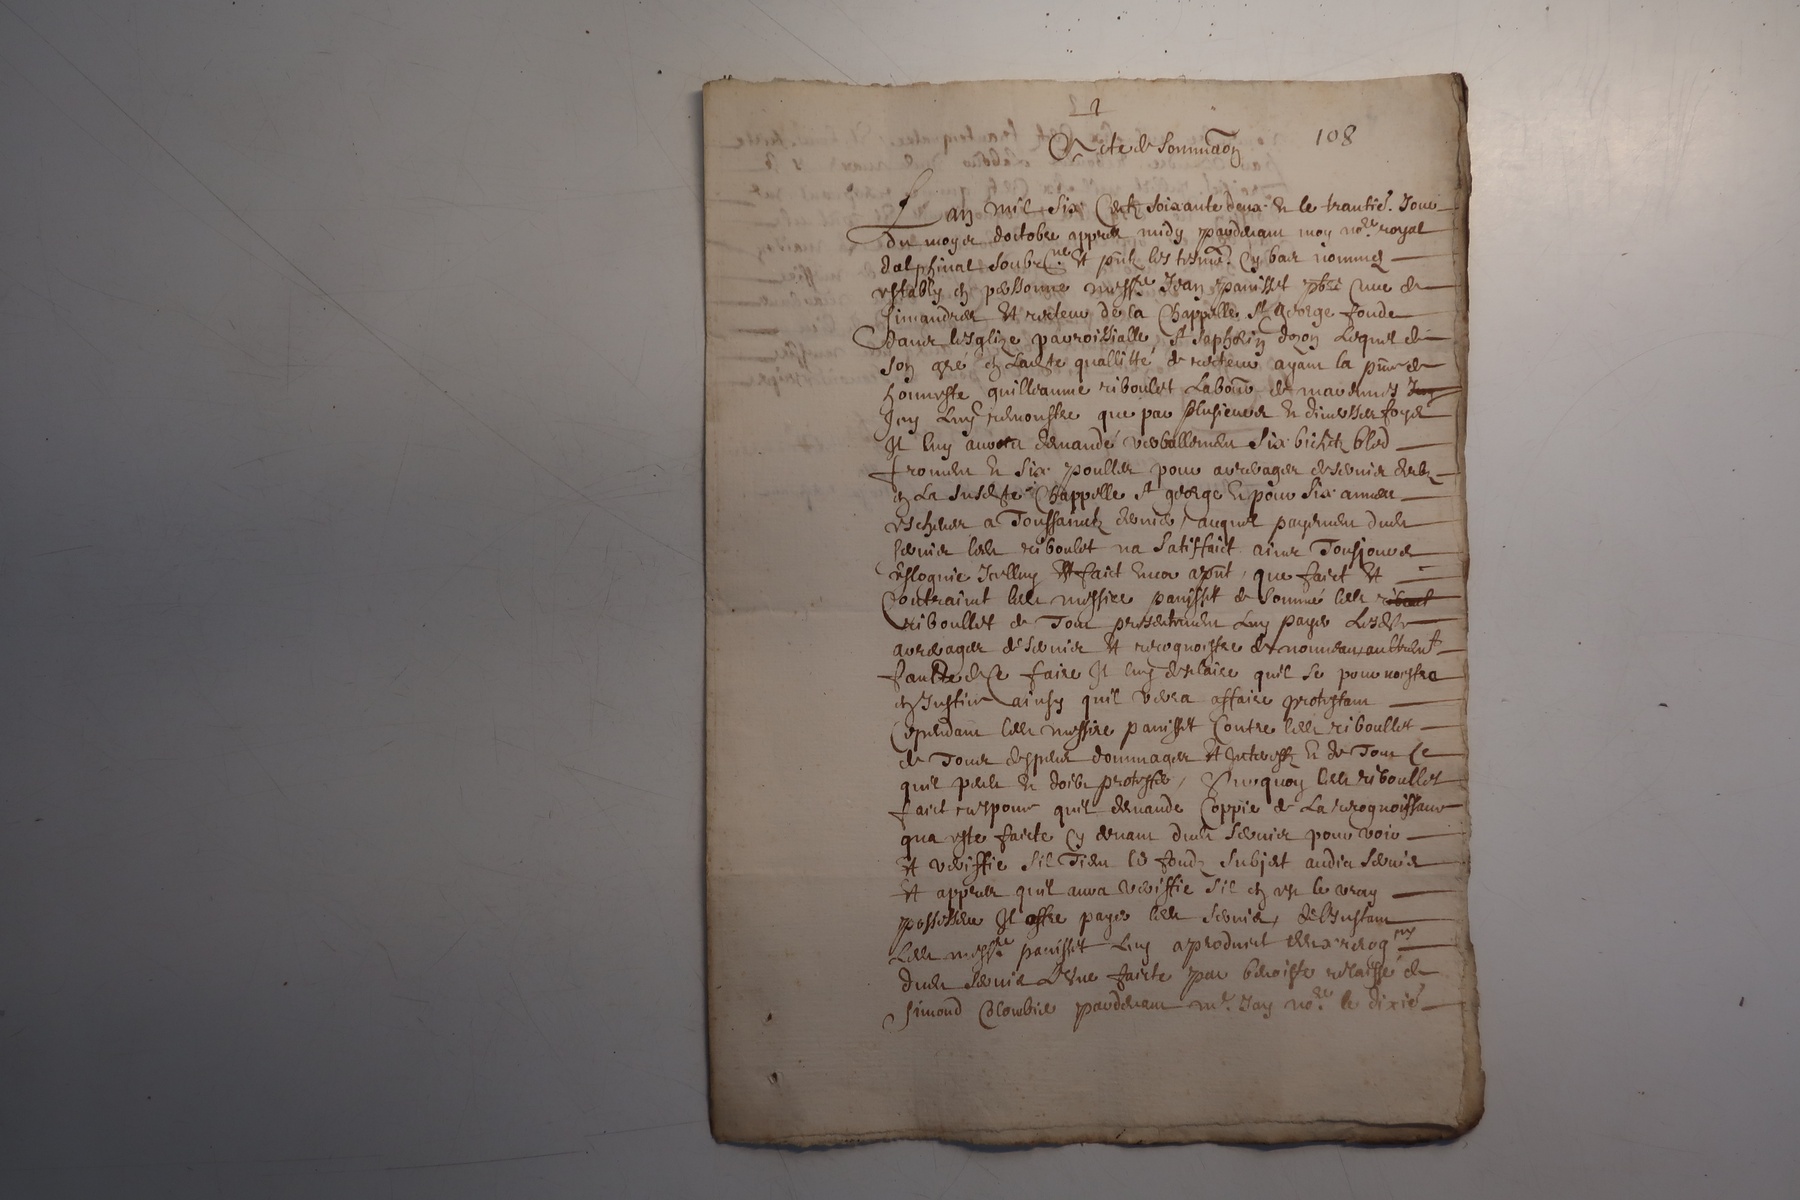 1
108
Acte de Sommaon
Lan mil six Centz soixante deux et le trantie. Jour
du moys doctobre appres midy pardevant moy nore royal
dalphinal soubzne et pntz les tesmz Cy bas nommes
estably en personne messre Jean panisset pbre Cure de
simandres et recteur de la Chappelle st george fonde
dans lesglize parroissialle st saphorin dozon lequel de
son gré en ladte quallitté de recteur ayant la pnce de
honneste guilleaume riboulet labour de marennes
Jcy luy remonstre que par plusieurs et diversses foys
Il luy auroit demandé verballement six bichetz bled
froment et six poulles pour arreages de servis debz
en la susdte Chappelle st george et pour six annees
escheues a Toussainctz dernier, auquel payement dudt
servis ledt riboulet na satisffaict ains Tousjours
esloignie Icelluy et faict encor apnt, que faict et
Contraint ledt messire panisset de sommé ledt
riboullet de Tout presentement luy payer lesdts
arreages de servis et recognoistre de nouveau aultremt
faulte de Ce faire Il luy desclaire quil se pourvoistra
en Justice ainsy quil verra affaire protestant
Cependant ledt messire panisset Contre ledt riboullet
de Tous despens dommages et Interestz et de Tout Ce
quil peult et doibt protester, Surquoy ledt riboullet
faict responce quil demande Coppie de la recognoissance
qua este faicte Cy devant dudt servis pour voir
et veriffie sil Tient le fondz subject audict servis
et appres quil aura veriffie sil en est le vray
possesseur Il offre payer ledt servis, de linstant
ledt messre panisset luy a produict deux recogons
dudt servis lune faicte par benoiste relaissé de
simond Colombier pardevant me. Jay nore le dixie